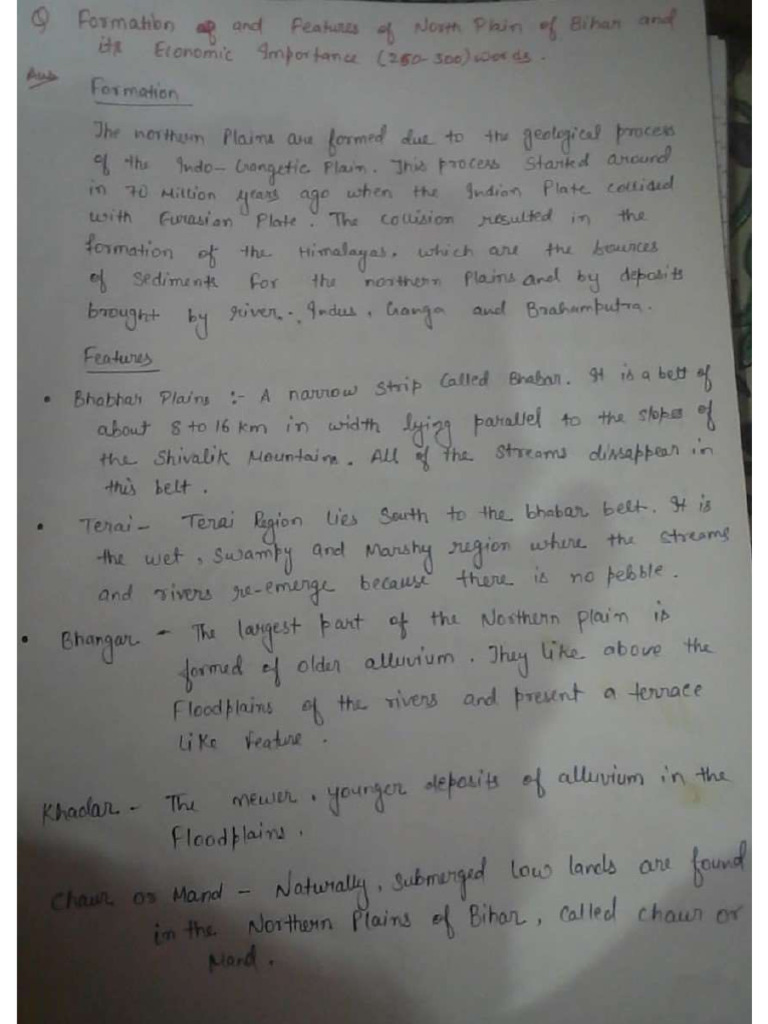 Q Formation of and Features of North Plain of Bihar and
its Economic Importance (250-300) words.
Ans
Formation
The northern Plains are formed due to the geological process
of the Indo-Gangetic Plain. This process started around
in 70 Million years ago when the Indian Plate collided
with Eurasian Plate. The collision resulted in the
formation of the Himalayas, which are the sources
of sediments for the northern Plains and by deposits
brought by river. Indus, Ganga and Brahamputra.
Features
• Bhabhar Plains :- A narrow strip called Bhabar. It is a belt of
about 8 to 16 km in width lying parallel to the slopes of
the Shivalik Mountains. All of the streams dissappear in
this belt.
• Terai - Terai Region lies South to the bhabar belt. It is
the wet, swampy and Marshy region where the streams
and rivers re-emerge because there is no pebble.
• Bhangar - The largest part of the Northern plain is
formed of older alluvium. They like above the
Floodplains of the rivers and present a terrace
like feature.
Khadar - The newer, younger deposits of alluvium in the
floodplains.
Chaur or Mand - Naturally, submerged low lands are found
in the Northern Plains of Bihar, called chaur or
Mand.